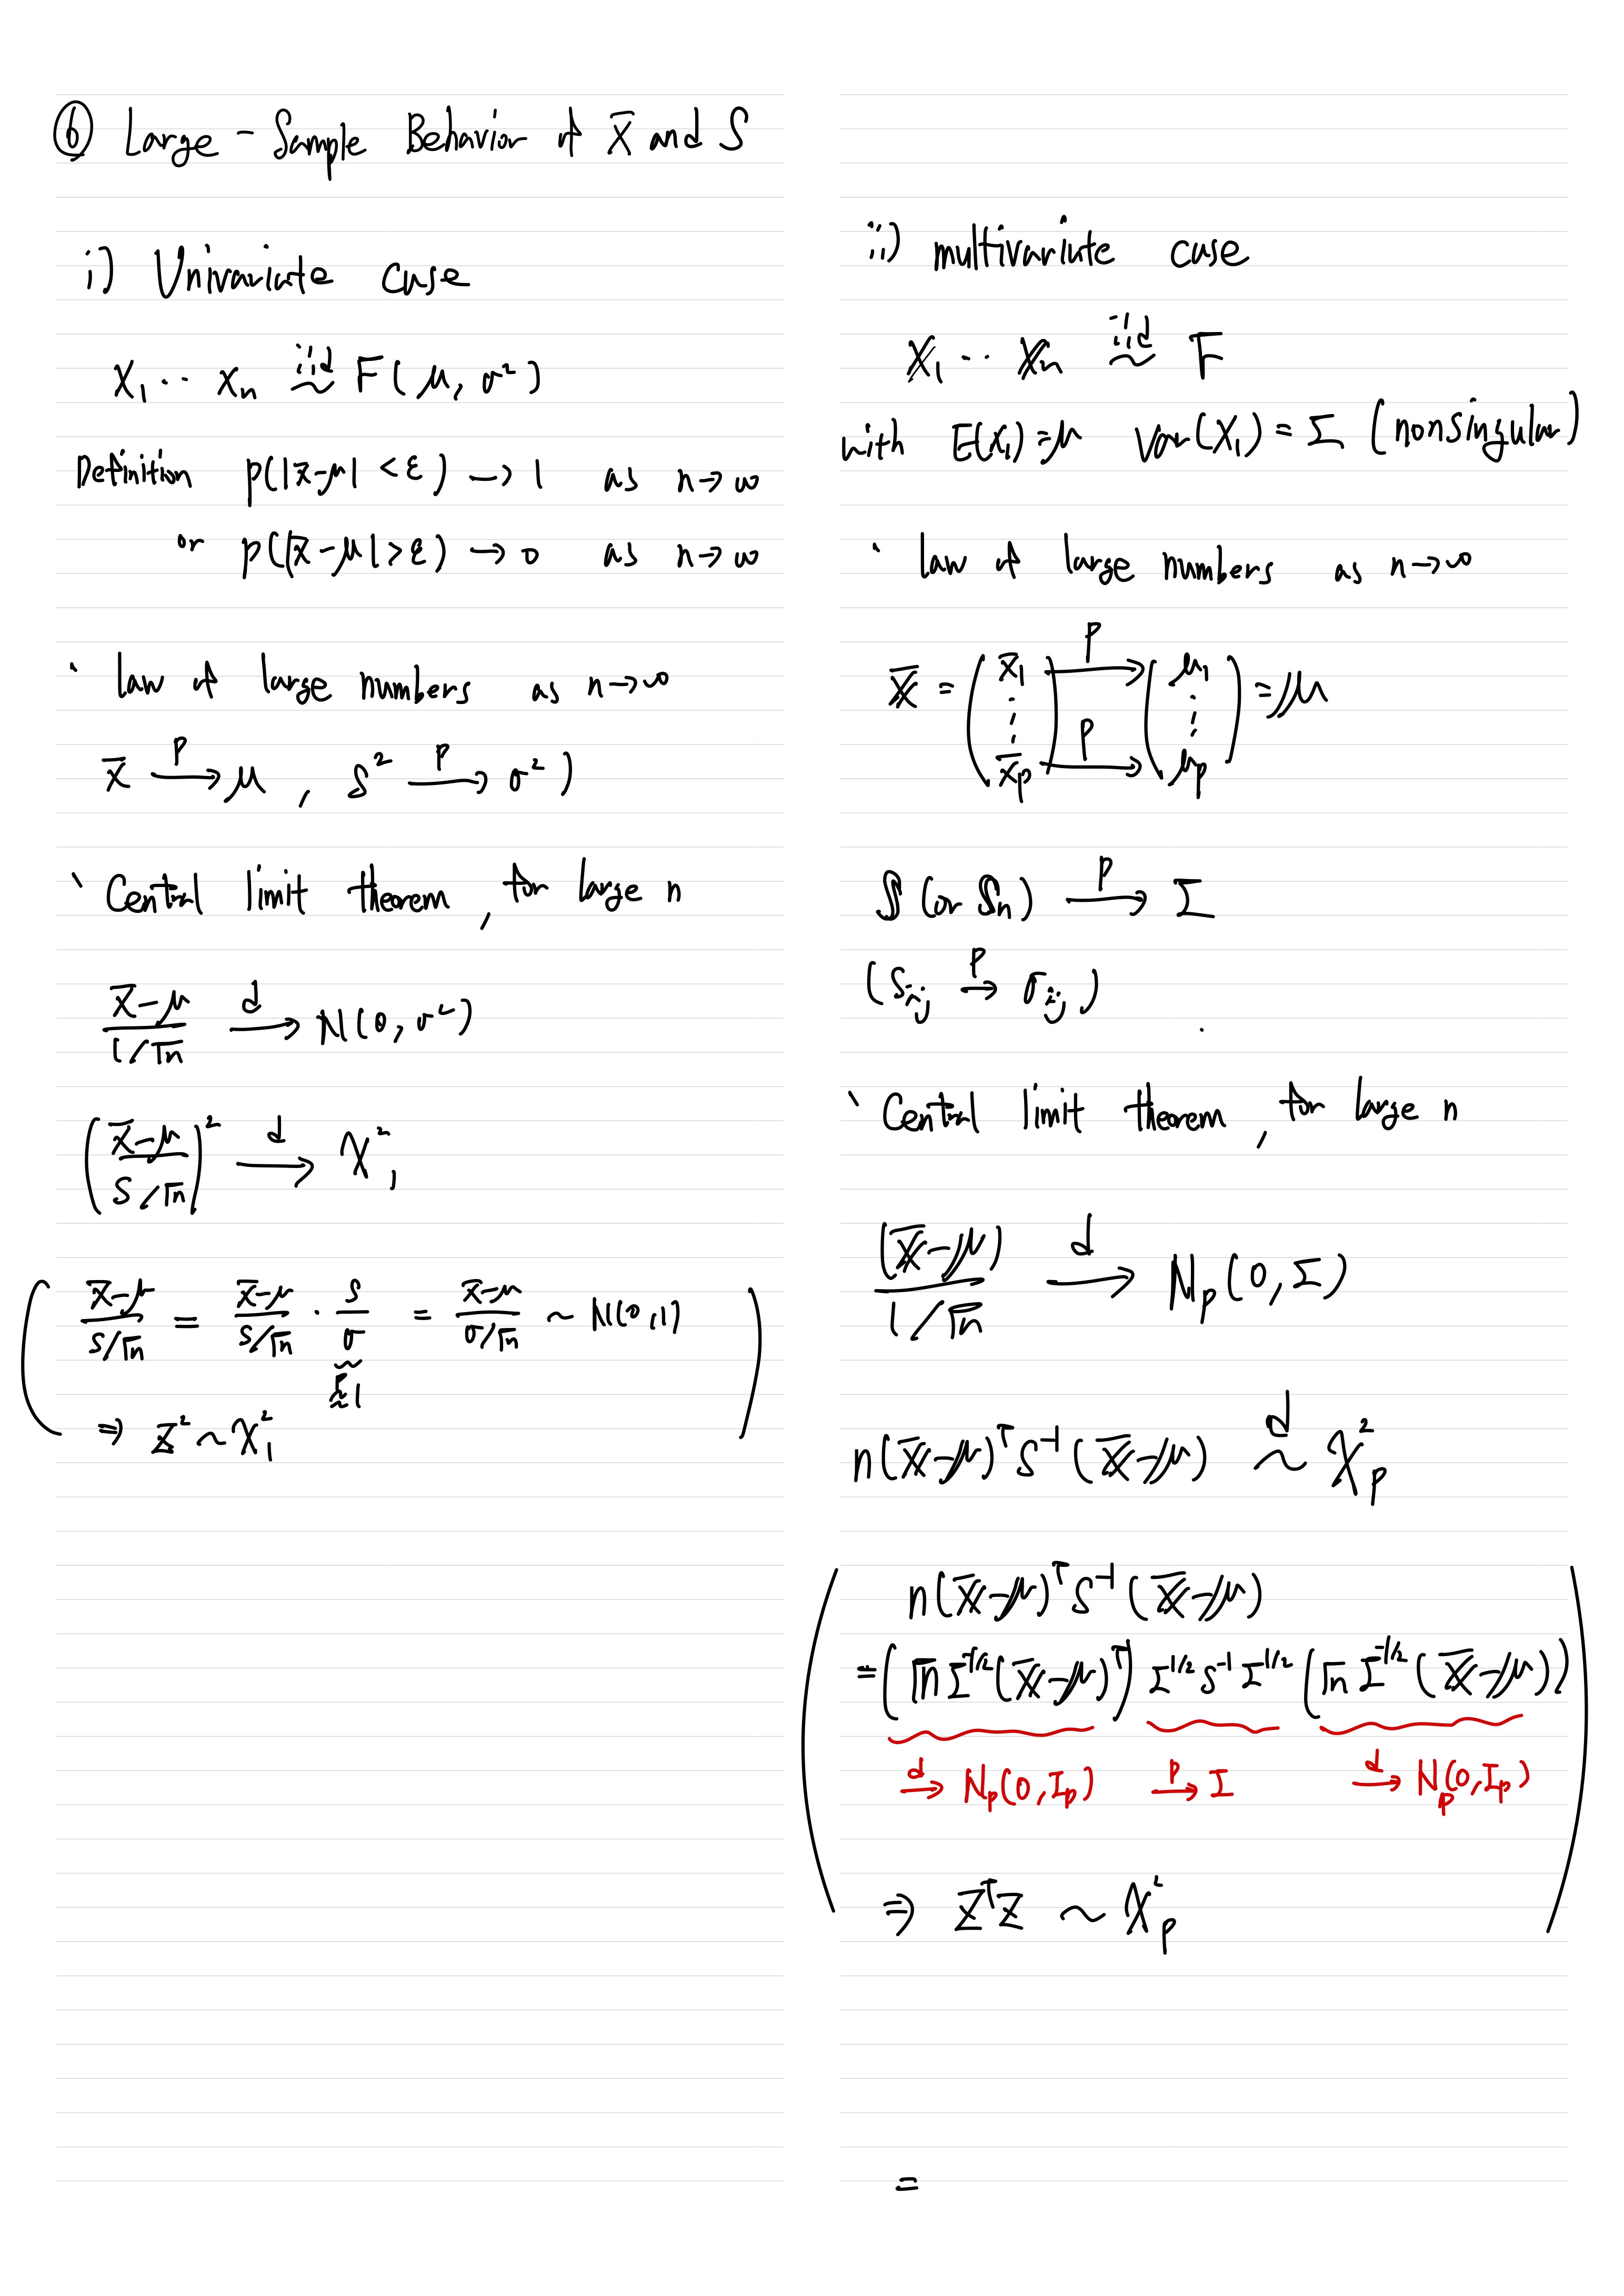 ⑥ Large - Sample Behavior of X̄ and S
i) Univariate case
X₁ ⋯ Xₙ iid ~ F(μ, σ²)
Definition p(|x̄-μ| < ε) → 1 as n→∞
or p(|x̄-μ| > ε) → 0 as n→∞
· Law of large numbers as n→∞
x̄ →ᵖ μ , s² →ᵖ σ² )
· Central limit theorem, for large n
(x̄-μ)/(1/√n) →ᵈ N(0, σ²)
((x̄-μ)/(S/√n))² →ᵈ χ²₁
( (x̄-μ)/(S/√n) = (x̄-μ)/(S/√n) · S/σ = (x̄-μ)/(σ/√n) ~ N(0,1) )
≈ᵖ 1
⇒ Z² ~ χ²₁
ii) multivariate case
X₁ ⋯ Xₙ iid ~ F
with E(X₁)=μ Var(X₁) = Σ (nonsingular)
· Law of large numbers as n→∞
X̄ = (x̄₁ ⋮ x̄ₚ) →ᵖ (μ₁ ⋮ μₚ) = μ
S (or Sₙ) →ᵖ Σ
(Sᵢⱼ →ᵖ σᵢⱼ)
· Central limit theorem, for large n
(X̄-μ)/(1/√n) →ᵈ Nₚ(0, Σ)
n(X̄-μ)ᵀS⁻¹(X̄-μ) ~ᵈ χ²ₚ
n(X̄-μ)ᵀS⁻¹(X̄-μ)
= (√n Σ^{-1/2}(X̄-μ)ᵀ) Σ^{1/2} S⁻¹ Σ^{1/2} (√n Σ^{-1/2}(X̄-μ))
→ᵈ Nₚ(0, Iₚ) →ᵖ I →ᵈ Nₚ(0, Iₚ)
⇒ ZᵀZ ~ χ²ₚ
=